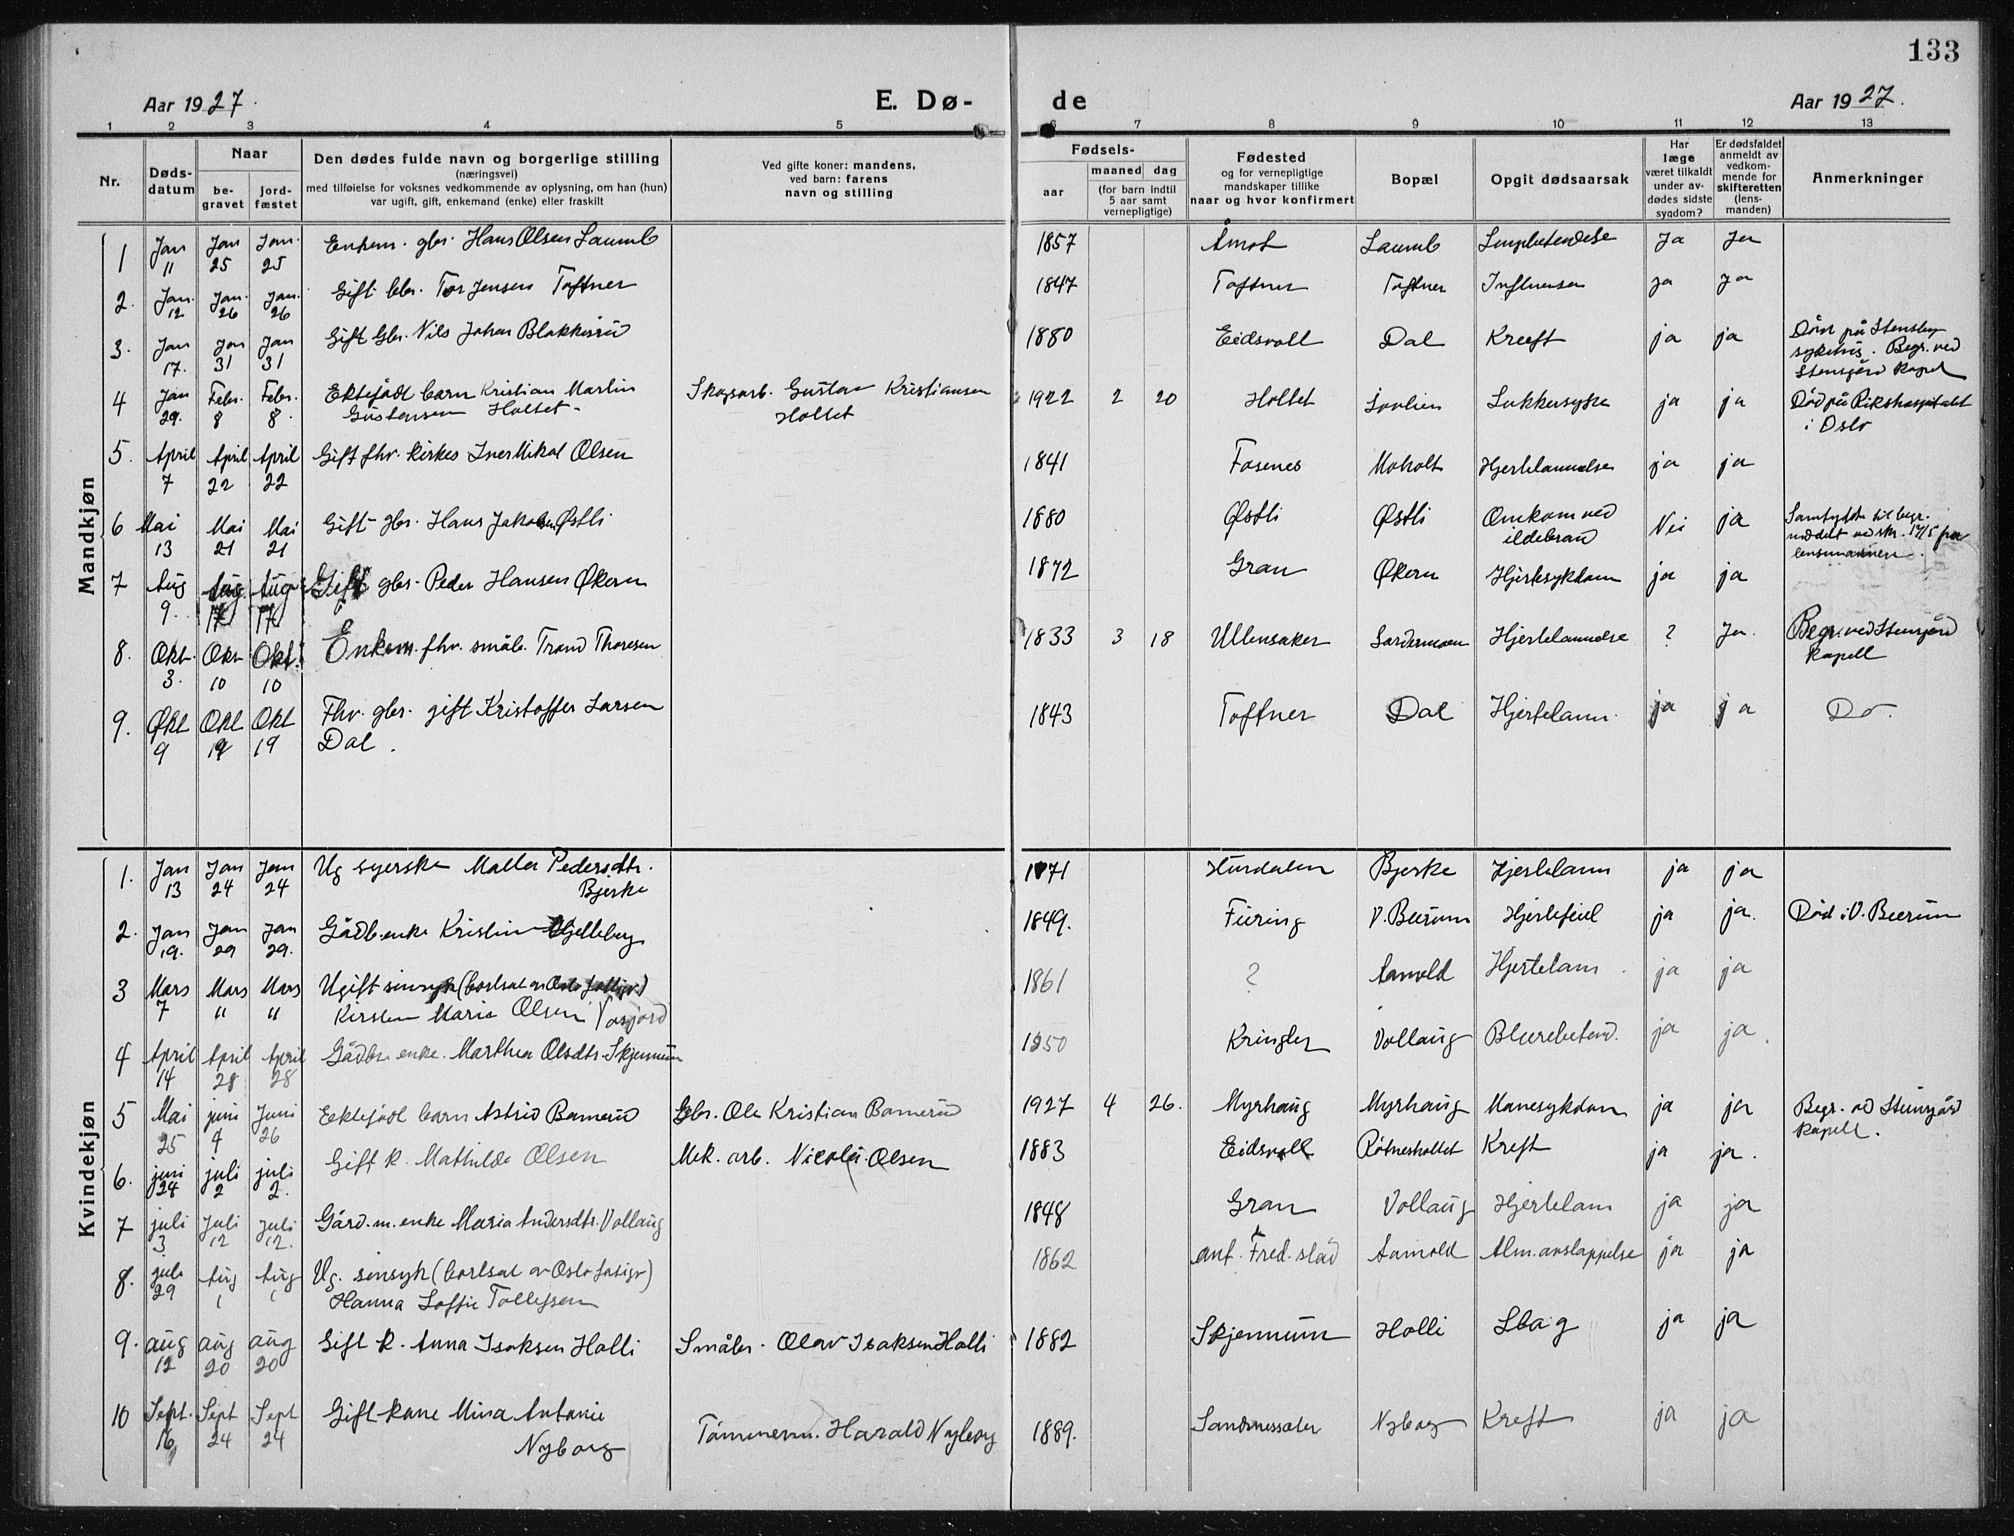 133
Aar 1927. E. Dø- de Aar 1927.
1 2 3 4 5 6 7 8 9 10 11 12 13
Nr. Døds-datum Naar be-gravet jord-fæstet Den dødes fulde navn og borgerlige stilling (næringsvei) med tilføielse for voksnes vedkommende av oplysning, om han (hun) var ugift, gift, enkemand (enke) eller fraskilt Ved gifte koner: mandens, ved barn: farens navn og stilling Fødsels- aar maaned dag (for barn indtil 5 aar samt vernepligtige) Fødested og for vernepligtige mandskaper tillike naar og hvor konfirmert Bopæl Opgit dødsaarsak Har læge været tilkaldt under av-dødes sidste sygdom? Er dødsfaldet anmeldt av vedkom-mende for skifteretten (lens-manden) Anmerkninger
Mandkjøn
1 Jan 11 Jan 25 Jan. 25 Enkem. gbr. Hans Olsen 1857 Åmot Ja Ja
2. Jan. 12 Jan. 26 Jan. 26 Gift Gbr. Tor Jensen Toftner 1847 Toftner Toftner Influensa ja ja
3. Jan 17. Jan 31 Jan 31 Gift Gbr. Nils Johan Blakkisrud 1880 Eidsvoll Dal Kreft ja ja Død på Stensby sykehus. Begr. ved Stensgård kapel
4 Jan 29. Febr. 8 Febr. 8. Ektefødt barn Kristian Martin Gustavsen Holtet. Skogsarb. Gustav Kristiansen Holtet 1922 2 20 Holtet Sukkersyke ja ja Død på Rikshospitalet i Oslo
5. April 7 April 22 April 22 Gift fhv. kirkes. Iver Mikal Olsen 1841 Fosenes Moholt Hjertelammelse ja ja
6 Mai 13 Mai 21 Mai 21 Gift gbr. Hans Jakobsen Østli 1880 Østli Østli Omkom ved ildebrand Nei ja Samtykke til begr. meddelt ved skr. 17/5 fra lensmannen.
7 Aug 9. Aug. 17 Aug 17 Gift gbr. Peder Hansen Økern 1872 Gran Økern Hjertesykdom ja ja
8. Okt. 3. Okt 10 Okt. 10 Enkem. fhv. småb. Trond Thoresen 1833 3 18 Ullensaker Gardermoen Hjertelammelse ? Ja. Begr. ved Stensgård kapell
9. Okt 9 Okt 19 Okt 19 Fhv. gbr. gift Kristoffer Larsen Dal. 1843 Toftner Dal Hjertelam. ja ja Do.
Kvindekjøn
1. Jan 13 Jan 24 Jan 24 Ug syerske Malla Pedersdtr. Bjerke 1871 Hurdalen Bjerke Hjertelam ja ja
2. Jan 19. Jan 29 Jan 29. Gårdb.enke Kristine Hjelleberg 1849. Feiring V. Bærum Hjertefeil ja ja. Død i V. Bærum
3 Mars 7 Mars " Mars " Ugift sinsyk (bortsat av Oslo fattigv.) Kirsten Marie Olsen 1861 ? Hjertelam. ja ja
4 April 14 April 28 April 28 Gårdbr. enke. Marthea Olsdtr. Skjennum 1850 Kringler Vollaug Blærebetend. ja ja.
5 Mai 25 juni 4 Juni 26 Eektefødt barn Astrid Bamerud Gbr. Ole Kristian Bamerud 1927 4 26. Myrhaug Myrhaug Mavesykdom ja ja Begr. ved Stensgård kapell.
6. juni 28 juli 2 juli 2. Gift k. Mathilde Olsen Mek. arb. Nicolai Olsen 1883 Eidsvoll Råtnesholtet Kreft ja ja.
7 juli 3 Juli 12 Juli 12. Gård.m. enke Maria Andersdtr. Vollaug 1848 Gran Vollaug Hjertelam ja ja
8. juli 29 Aug 1 Aug 1 Ug. sinsyk (bortsat av Oslo fatigv) Hanna Soffie Tollefsen 1862 ant. Fred.stad Alm. avslappelse ja ja
9. aug 12 aug 20 aug 20 Gift k. Anna Isaksen Holli Småbr. Olav Isaksen Holli 1882 Skjennum Holli Slag ja ja
10 Sept. 16 Sept 24 Sept 24 Gift kone Mina Antonie Nyborg Tømmerm. Harald Nyborg 1889. Nyborg Kreft ja ja